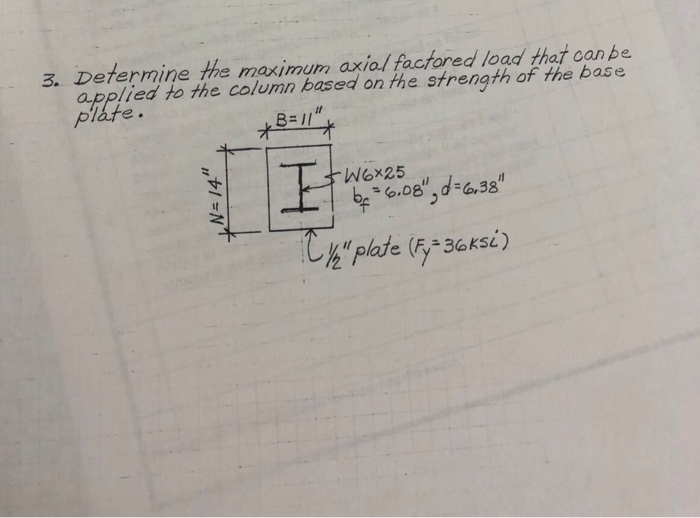 3. Determine the maximum axial factored load that can be
applied to the column based on the strength of the base
plate.
B=11"
N=14"
W6×25
bf=6.08", d=6.38"
1/2" plate (Fy=36ksi)